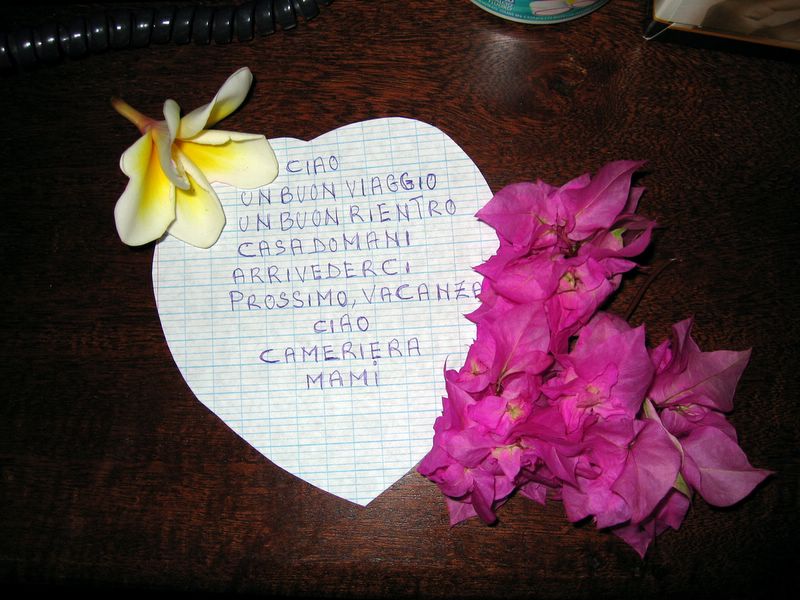 CIAO
UN BUON VIAGGIO
UN BUON RIENTRO
CASA DOMANI
ARRIVEDERCI
PROSSIMO, VACANZA
CIAO
CAMERIERA
MAMi